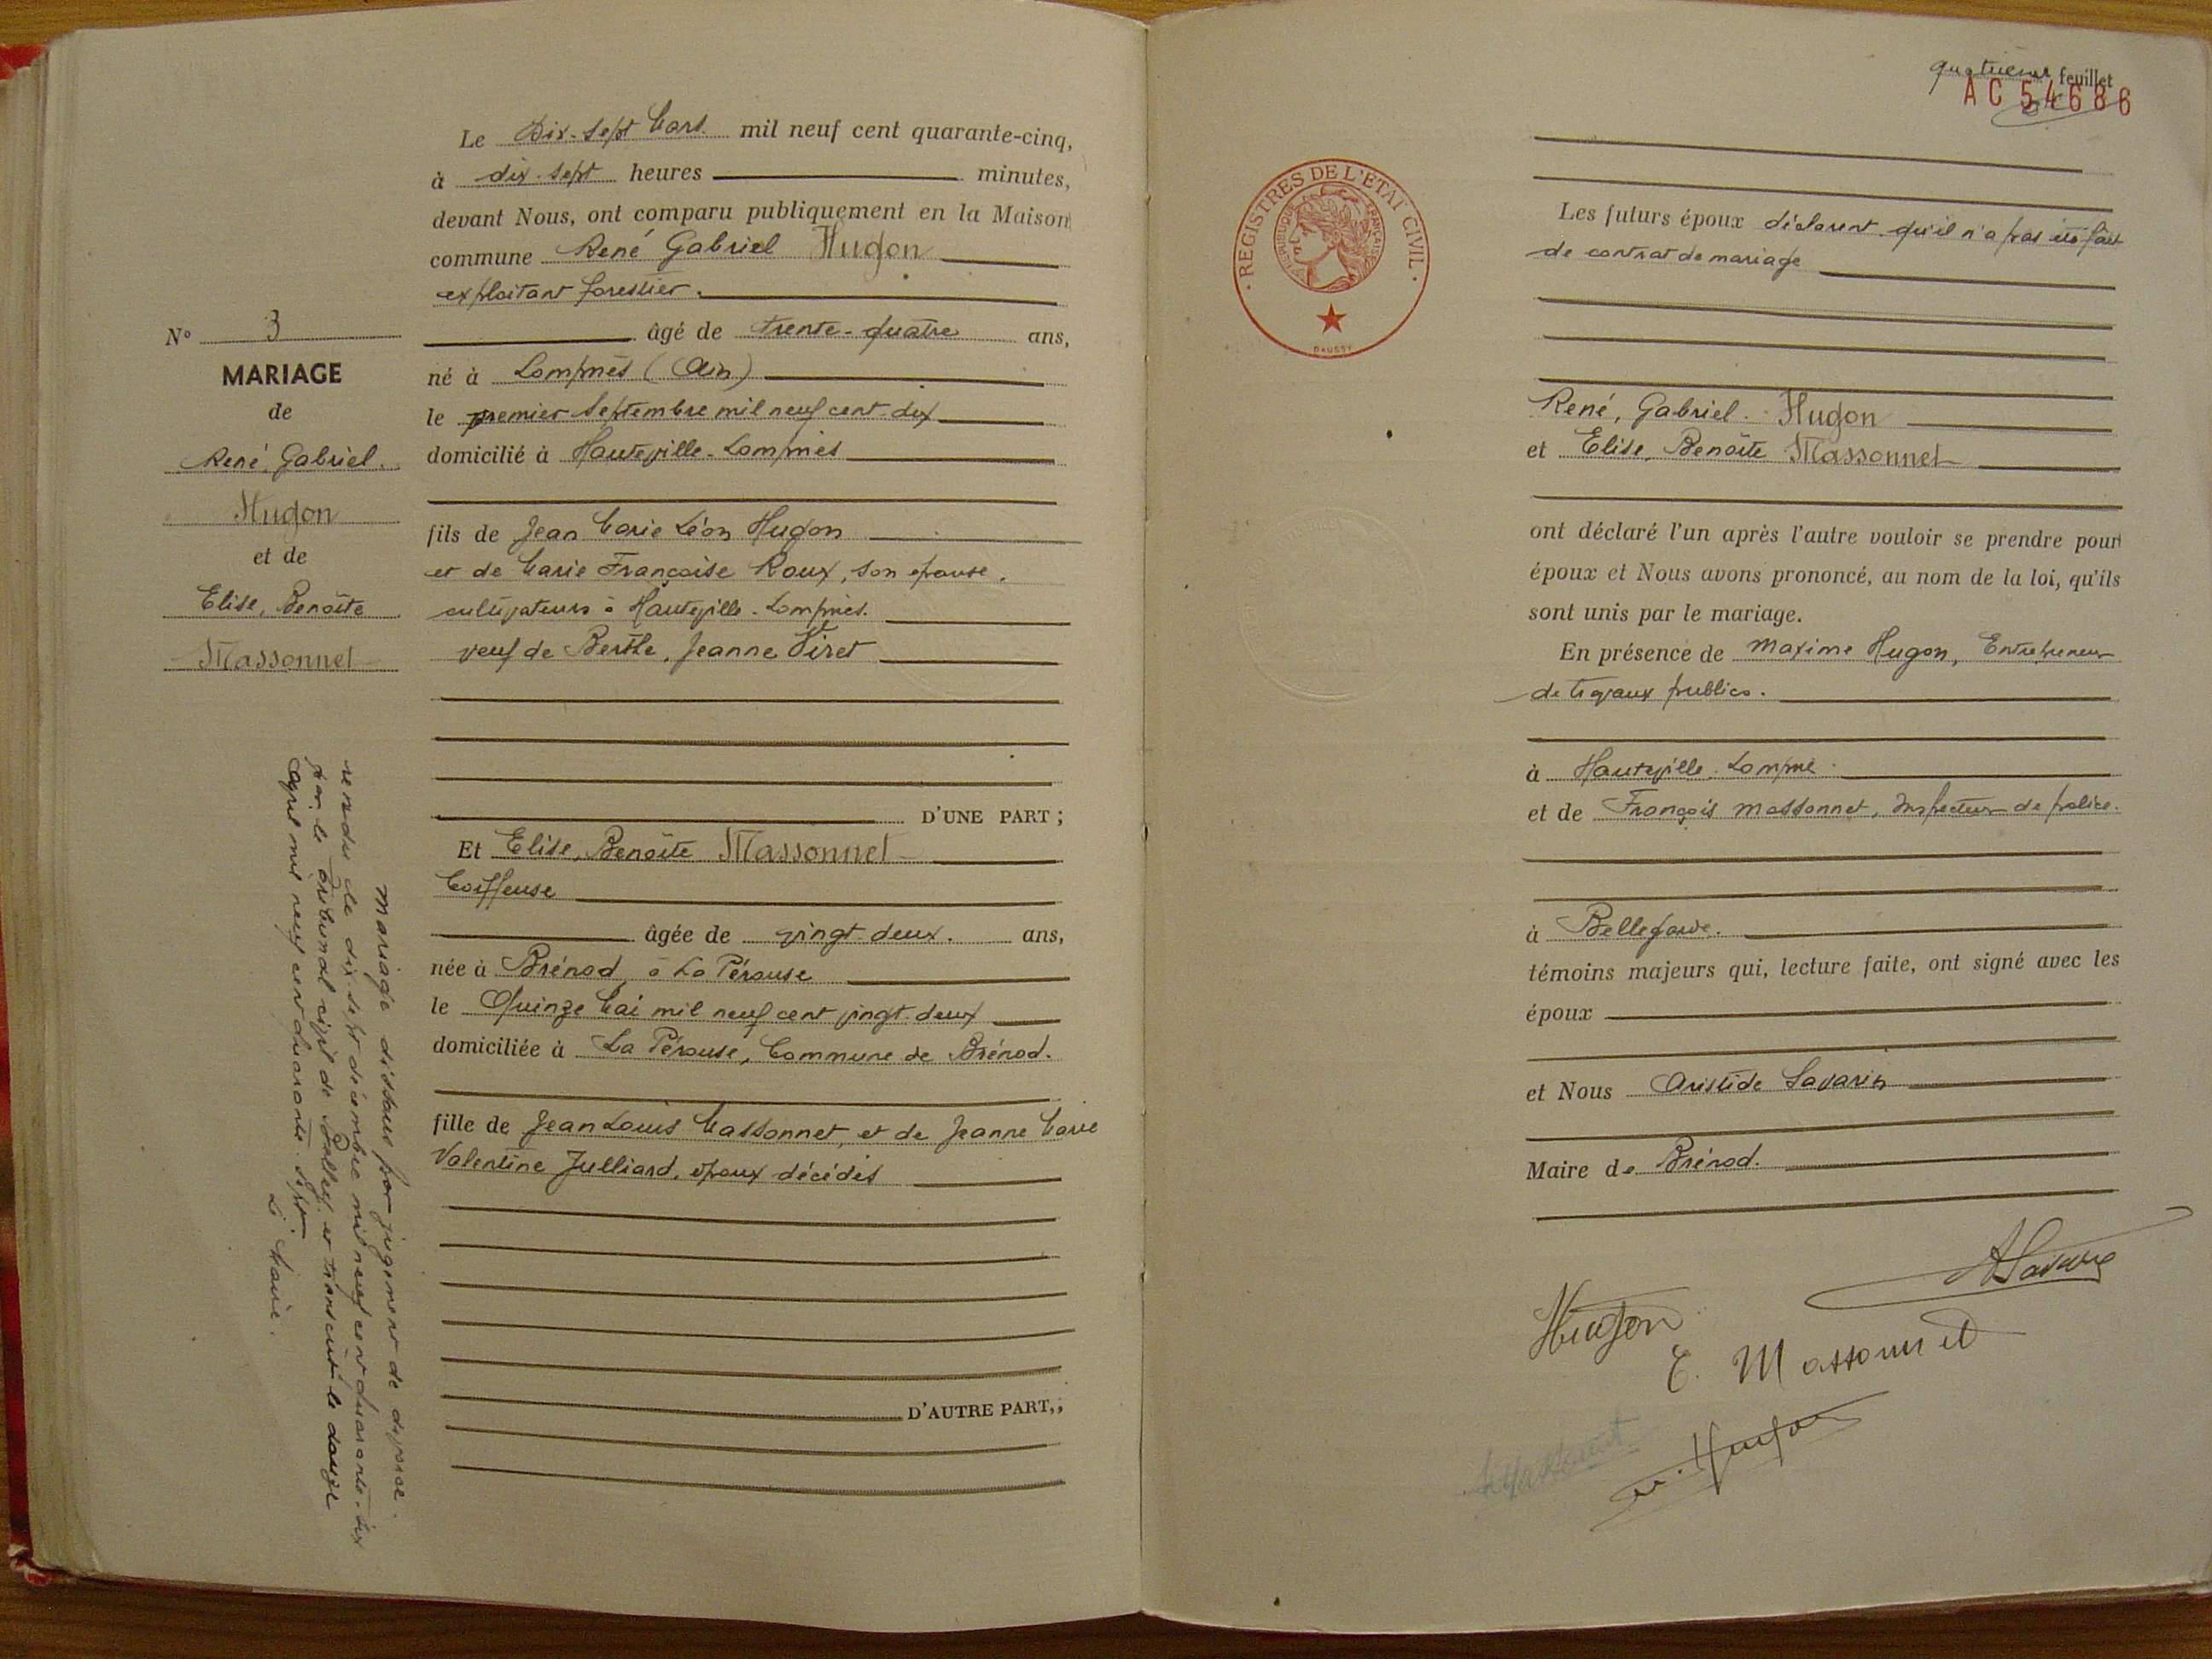 Le Dix-sept Mars mil neuf cent quarante-cinq,
à dix-sept heures minutes,
devant Nous, ont comparu publiquement en la Maison
commune René Gabriel Hugon
exploitant forestier.
âgé de trente-quatre ans,
né à Lompnès (Ain)
le premier Septembre mil neuf cent dix
domicilié à Hauteville-Lompnès
fils de Jean Marie Léon Hugon
et de Marie Françoise Roux, son épouse,
cultivateurs à Hauteville-Lompnès.
veuf de Berthe, Jeanne Viret
D'UNE PART ;
Et Elise, Benoîte Massonnet
Coiffeuse
âgée de vingt-deux. ans,
née à Brénod, à La Pérouse
le Quinze Mai mil neuf cent vingt-deux
domiciliée à La Pérouse, Commune de Brénod.
fille de Jean Louis Massonnet, et de Jeanne Marie
Valentine Julliard, époux décédés
D'AUTRE PART,;
N° 3
MARIAGE
de
René, Gabriel.
Hugon
et de
Elise, Benoîte
Massonnet
Mariage dissous par jugement de divorce.
rendu le dix-sept décembre mil neuf cent quarante-six
par le Tribunal civil de Belley et transcrit le douze
Avril mil neuf cent quarante-sept
Le Maire.
quatrième feuillet
AC 54686
REGISTRES DE L'ETAT CIVIL
REPUBLIQUE FRANÇAISE
DAUSSY
Les futurs époux déclarent qu'il n'a pas été fait
de contrat de mariage
René, Gabriel. Hugon
et Elise, Benoîte Massonnet
ont déclaré l'un après l'autre vouloir se prendre pour
époux et Nous avons prononcé, au nom de la loi, qu'ils
sont unis par le mariage.
En présence de Maxime Hugon, Entrepreneur
de travaux publics.
à Hauteville-Lompnès.
et de François Massonnet, Inspecteur de police.
à Bellegarde.
témoins majeurs qui, lecture faite, ont signé avec les
époux
et Nous Aristide Savarin
Maire de Brénod.
A Savarin
Hugon
E. Massonnet
M. Hugon